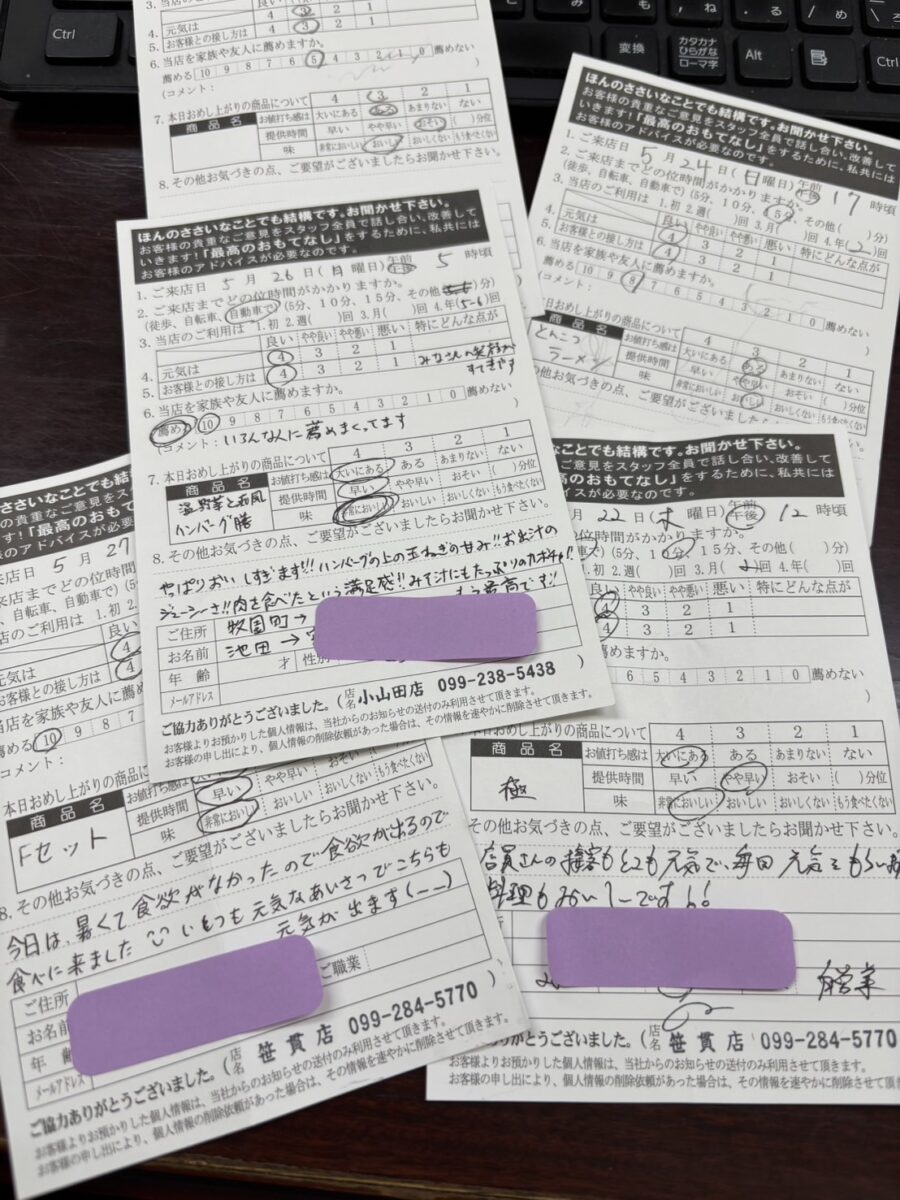 Ctrl
変換
カタカナ
ひらがな
ローマ字
Alt
Ctrl
3. 当店のご利用は
4. 元気は
5. お客様との接し方は 4 3 2 1
6. 当店を家族や友人に薦めますか。
薦める 10 9 8 7 6 5 4 3 2 1 0 薦めない
(コメント:
7. 本日おめし上がりの商品について 4 3 2 1
商品名 お値打ち感は 大いにある ある あまりない ない
提供時間 早い やや早い おそい ( )分位
味 非常においしい おいしい おいしくない もう食べくない
8. その他お気づきの点、ご要望がございましたらお聞かせ下
ほんのささいなことでも結構です。お聞かせ下さい。
お客様の貴重なご意見をスタッフ全員で話し合い、改善して
いきます!「最高のおもてなし」をするために、私共には
お客様のアドバイスが必要なのです。
1. ご来店日 5月24日(日曜日)午前 午後 17時頃
2. ご来店までどの位時間がかかりますか。
(徒歩、自転車、自動車で)(5分、10分、15分、その他( )分)
3. 当店のご利用は 1.初 2.週( )回 3.月( )回 4.年(2)回
良い やや良い やや悪い 悪い 特にどんな点が
4. 元気は 4 3 2 1
5. お客様との接し方は 4 3 2 1
6. 当店を家族や友人に薦めますか。
薦める 10 9 8 7 6 5 4 3 2 1 0 薦めない
(コメント:
本日おめし上がりの商品について 4 3 2 1
商品名 お値打ち感は 大いにある ある あまりない ない
とんこつ
ラーメン
提供時間 早い やや早い おそい ( )分位
味 非常においしい おいしい おいしくない もう食べくない
の他お気づきの点、ご要望がございましたらお聞かせ下さい。
ほんのささいなことでも結構です。お聞かせ下さい。
お客様の貴重なご意見をスタッフ全員で話し合い、改善して
いきます!「最高のおもてなし」をするために、私共には
お客様のアドバイスが必要なのです。
1. ご来店日 5月26日(月曜日)午前 午後 5時頃
2. ご来店までどの位時間がかかりますか。
(徒歩、自転車、自動車で)(5分、10分、15分、その他 分)
3. 当店のご利用は 1.初 2.週( )回 3.月( )回 4.年(5-6)回
良い やや良い やや悪い 悪い 特にどんな点が
4. 元気は 4 3 2 1
5. お客様との接し方は 4 3 2 1 みなさんの笑顔が
すてきです
6. 当店を家族や友人に薦めますか。
薦める 10 9 8 7 6 5 4 3 2 1 0 薦めない
(コメント: いろんな人に薦めまくってます )
7. 本日おめし上がりの商品について 4 3 2 1
商品名 お値打ち感は 大いにある ある あまりない ない
温野菜と和風
ハンバーグ膳
提供時間 早い やや早い おそい ( )分位
味 非常においしい おいしい おいしくない もう食べくない
8. その他お気づきの点、ご要望がございましたらお聞かせ下さい。
やっぱりおいしすぎます!!! ハンバーグの上の玉ねぎの甘み!! お出汁の
ジューシーさ!! 肉を食べたという満足感!! みそ汁にもたっぷりのカボチャ!!
もう最高です!!
ご住所 牧園町→
お名前 池田→
年齢 才 性別
メールアドレス
ご協力ありがとうございました。(店名 小山田店 099-238-5438 )
お客様よりお預かりした個人情報は、当社からのお知らせの送付のみ利用させて頂きます。
お客様の申し出により、個人情報の削除依頼があった場合は、その情報を速やかに削除させて頂きます。
ささいなことでも結構です
来店日 5月27
来店までどの位時
、自転車、自動車で)(5
店のご利用は 1.初
良い
元気は 4
お客様との接し方は 4
当店を家族や友人に薦め
薦める 10 9 8 7
コメント:
本日おめし上がりの商品に
商品名 お値打ち感は
Fセット
提供時間 早い やや早い おそい ( )分位
味 非常においしい おいしい おいしくない もう食べくない
8. その他お気づきの点、ご要望がございましたらお聞かせ下さい。
今日は、暑くて食欲がなかったので食欲が出るので
食べに来ました いつも元気なあいさつでこちらも
元気が出ます(--)
ご住所
お名前
ご職業
年齢
メールアドレス
ご協力ありがとうございました。(店名 笹貫店 099-284-5770 )
お客様よりお預かりした個人情報は、当社からのお知らせの送付のみ利用させて頂きます。
お客様の申し出により、個人情報の削除依頼があった場合は、その情報を速やかに削除させて頂きます。
なことでも結構です。お聞かせ下さい。
ご意見をスタッフ全員で話し合い、改善して
最高のおもてなし」をするために、私共には
イスが必要なのです。
月22日(木曜日)午前 午後 12時
時間がかかりますか。
(5分、10分、15分、その他( )分)
2.週( )回 3.月( 2 )回 4.年( )回
良い やや良い やや悪い 悪い 特にどんな点が
4 3 2 1
4 3 2 1
めますか。
6 5 4 3 2 1 0 薦めない
商品について 4 3 2 1
商品名 お値打ち感は 大いにある ある あまりない ない
極
提供時間 早い やや早い おそい ( )分位
味 非常においしい おいしい おいしくない もう食べくない
その他お気づきの点、ご要望がございましたらお聞かせ下さい。
店員さんの接客もとても元気で、毎回元気をもらい
料理もおいしーです!!
自営業
りがとうございました。(店名 笹貫店 099-284-5770
お客様よりお預かりした個人情報は、当社からのお知らせの送付のみ利用させて頂きます。
お客様の申し出により、個人情報の削除依頼があった場合は、その情報を速やかに削除させて頂き